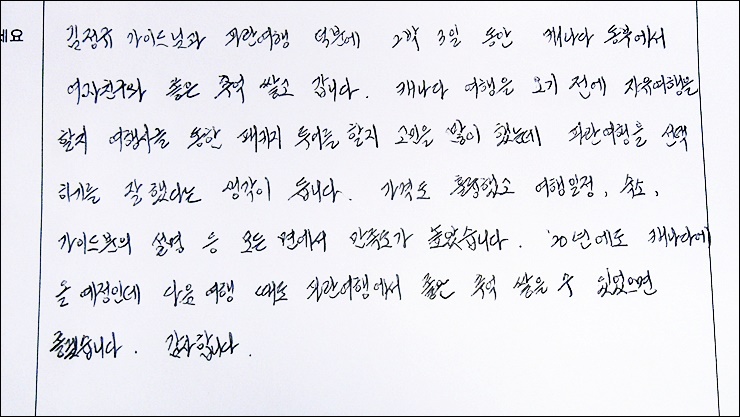 세요
김정규 가이드님과 파란여행 덕분에 2박 3일 동안 캐나다 동부에서
여자친구와 좋은 추억 쌓고 갑니다. 캐나다 여행을 오기 전에 자유여행을
할지 여행사를 통한 패키지 투어를 할지 고민을 많이 했는데 파란여행를 선택
하기를 잘했다는 생각이 듭니다. 가격도 훌륭했고 여행일정, 숙소,
가이드분의 설명 등 모든 면에서 만족도가 높았습니다. '20년에도 캐나다에
올 예정인데 다음 여행 때도 파란여행에서 좋은 추억 쌓을 수 있었으면
좋겠습니다. 감사합니다.